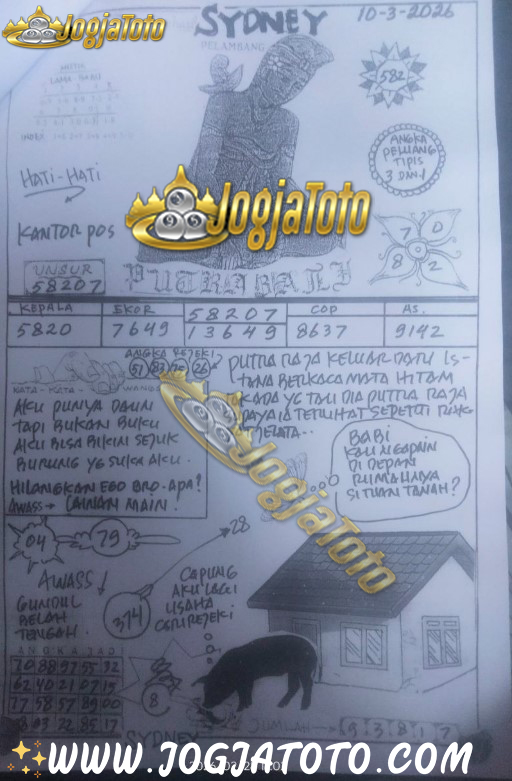 JogjaToto
SYDNEY
10-3-2026
PELAMBANG
LAMA BARU
582
ANGKA
PELUANG
TIPIS
3 DAN 1
HATI-HATI
KANTOR POS
JogjaToto
7 0
8 2
UNSUR
58207
PUTRA BALI
KEPALA EKOR 58207 COP AS.
5820 7649 13649 8637 9142
ANGKA REJEKI
51 83 20 26
KATA - KATA - WANGI
AKU PUNYA DAUN
TAPI BUKAN BUKU
AKU BISA BIKIN SEJUK
BURUNG YG SUKA AKU.
HILANGKAN EGO BRO. APA?
AWASS → LAINAN MAIN.
PUTRA RAJA KELUAR DARI IS-
TANA BERKACA MATA HITAM
KADA YG TAU DIA PUTRA RAJA
TERLIHAT SEPERTI
JELATA...
BABI
KAU NGAPAIN
DI DEPAN
RUMAHNYA
SI TUAN TANAH?
JogjaToto
04
79
28
AWASS!
GUNDUL
BELAH
TENGAH.
374
CAPUNG
AKU LAGI
USAHA
CARI REJEKI
ANGKA JADI
70 88 97 55 32
62 40 21 07 15
77 58 57 89 00
03 72 85 17
8
SYDNEY
JUMLAH
9 3 8 1 7
WWW.JOGJATOTO.COM